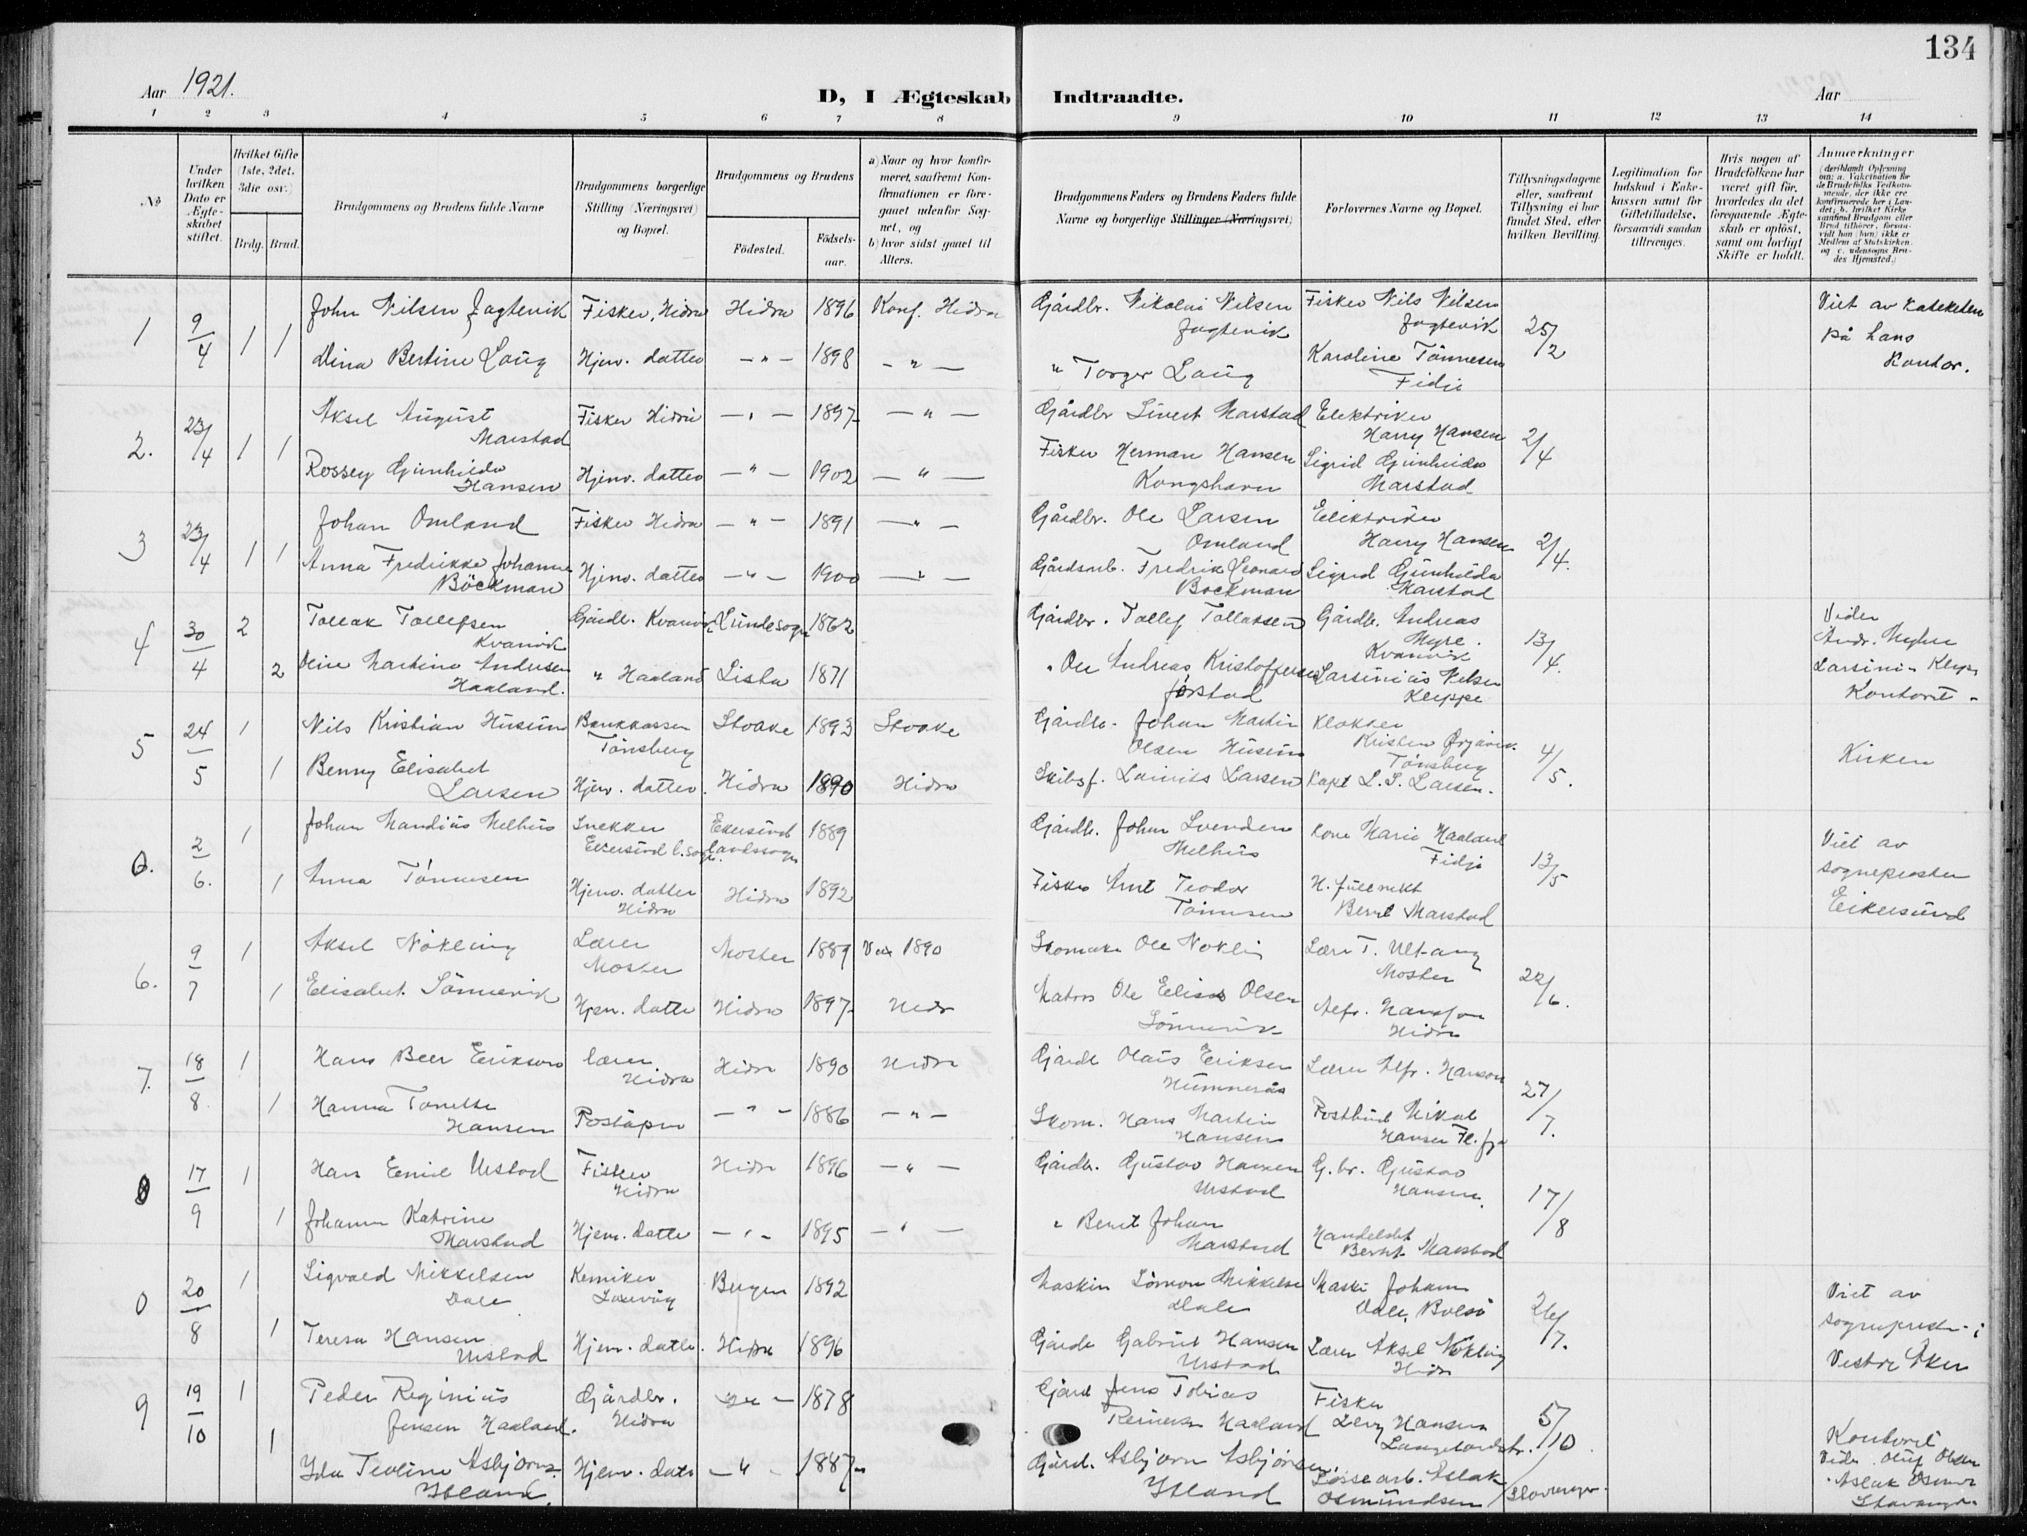 134
Aar 1921.
D, I Ægteskab Indtraadte.
Aar
1 2 3 4 5 6 7 8 9 10 11 12 13 14
No
Under hvilken Dato er Ægteskabet stiftet.
Hvilket Gifte (1ste, 2det, 3die osv.)
Brdg. Brud.
Brudgommens og Brudens fulde Navne
Brudgommens borgerlige Stilling (Næringsvei) og Bopæl.
Brudgommens og Brudens
Fødested.
Fødselsaar.
a) Naar og hvor konfirmeret, saafremt Konfirmationen er foregaaet udenfor Sognet, og
b) hvor sidst gaaet til Alters.
Brudgommens Faders og Brudens Faders fulde Navne og borgerlige Stillinger (Næringsvei)
Forlovernes Navne og Bopæl.
Tillysningsdagene eller, saafremt Tillysning ei har fundet Sted, efter hvilken Bevilling.
Legitimation for Indskud i Enkekassen samt for Giftetilladelse, forsaavidt saadan tiltrænges.
Hvis nogen af Brudefolkene har været gift før, hvorledes da det foregaaende Ægteskab er opløst, samt om lovligt Skifte er holdt.
Anmærkninger
1 9/4 1 1 John Nilsen Jagtevik Fisker, Hidra Hidra 1896 Konf. Hidra Gårdbr. Nikolai Nilsen Jagtevik Fisker Nils Nilsen Jagtevik 25/2 Viet av kateketen på hans Kontor.
Dina Bertine Laug Hjemv. datter - " - 1898 - " - " Torger Laug Karoline Tönnesen Fidje
2. 23/4 1 1 Aksel August Marstad Fisker Hidra - " - 1897 - " - Gårdbr Sivert Marstad Elektriker Harry Hansen 2/4
Rossey Gunhilda Hansen Hjemv. datter - " - 1902 - " - Fisker Herman Hansen Kongshavn Sigrid Gunhilda Marstad
3 23/4 1 1 Johan Omland Fisker Hidra - " - 1891 - " - Gårdbr. Ole Larsen Omland Elektriker Harry Hansen 2/4.
Anna Fredrikke Johanne Böckman Hjemv. datter - " - 1900 - " - Gårdsarb. Fredrik Leonard Bockman Sigrid Gunhilda Marstad
4 30/4 2 Tollak Tollefsen Kvanvik Gårdb. Kvanvik Lundesogn 1862 Gårdbr. Tollef Tollaksen Gårdb. Andreas Myre. Kvanvik 13/4. Vidne Andr. Myhre
2 Martine Andersen Haaland. " Haaland Lista 1871 " Ole Andreas Kristoffersen Jørstad Larsinius Nilsen Kleppe Kontoret -
5 24/5 1 Nils Kristian Husum Bankkasser Tönsberg Stokke 1893 Stokke Gårdb. Johan Martin Olsen Husum Klokker Kristen Tönsberg 4/5. Kirken
1 Benny Elisabet Larsen Hjemv. datter. Hidra 1890 Hidra Skibsf. Lauritz Larsen Kapt L. S. Larsen.
6. 2/6. 1 Johan Mandius Melhus Snekker Ekersund l.sogn. Ekersund landssogn 1889 Gårdb. Johan Svendsen Melhus Kone Marie Haaland Fidje 13/5 Viet av sogneprosten Eikersund
1 Anna Tönnesen Hjemv. datter Hidra Hidra 1892 Fisker Arnt Teodor Tönnesen Bernt Marstad
6. 9/7 1 Aksel Nökling Lærer Moster Moster 1889 1890 Skomaker Ole Nökling Lærer T. Moster 22/6.
1 Elisabet Sönnevik Hjem. datte Hidra 1897 Hidr Matros Ole Elias Olsen Sönnevik Alfr. Hansson Hidra
7. 18/8 1 Hans Beer Eriksen Lærer Hidra Hidra 1890 Hidra Gårdb Olaus Eriksen Hummerås Lærer Alfr. Hanson 27/7.
1 Hanna Tonette Hansen Poståpn - " - 1886 - " - Skom. Hans Martin Hansen Postbud Nikol Hansen
8 17/9 1 Hans Emil Urstad Fisker Hidra Hidra 1896 - " - Gårdb. Gustav Hansen Urstad G.br. Gustav Hansen. 17/8
1 Johanna Katrine Marstad Hjem. datte - " - 1895 - " - " Bernt Johan Marstad Handelsbt Bernt Marstad
0 20/8 1 Sigvald Mikkelsen Dale Kemiker Laksevåg Bergen 1892 Maskin Simon Mikkelse Dale Maski Johan Dale, Bolsö 26/7. Viet av sogneprest i Vestre Aker
1 Teresa Hansen Urstad Hjem. datte. Hidra 1896 Gårdb Gabriel Hansen Urstad Lærer Aksel Nökling Hidr
9 19/10 1 Peder Reginius Jensen Haaland. Gårdbr. Hidra - " - 1878 Gård Jens Tobias Reinertsen Haaland Fisker Levy Hansen 5/10. Kontoret
1 Ida Teoline Asbjörns. Itland. Hjem. datt - " - 1887 Gård. Asbjørn Asbjörnsen Itland Aslak Osmundsen Stavanger. Vidn Oluf Olsen Aslak Osmun Stavanger